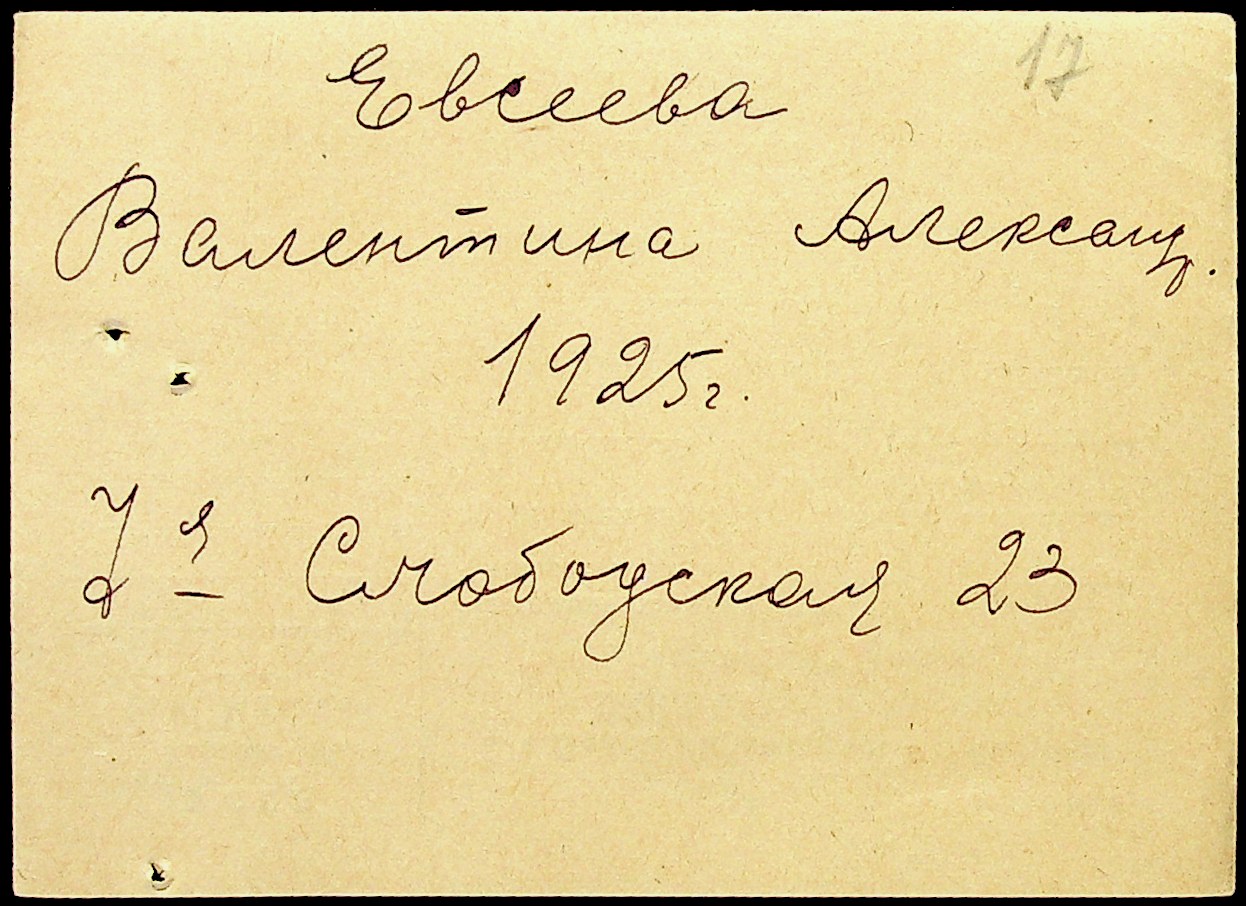 17
Евсеева
Валентина Александ.
1925г.
я Слободская 23